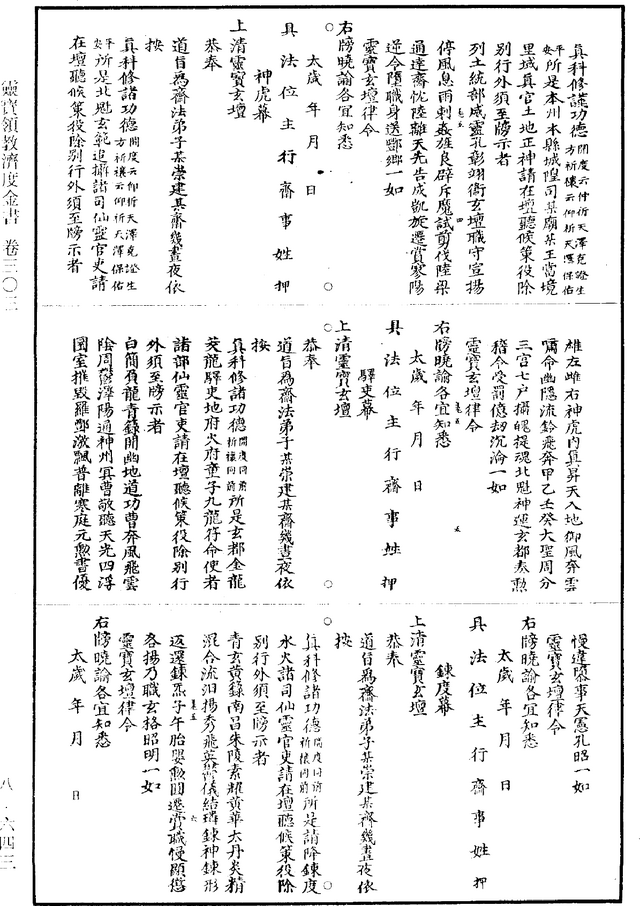 真科修諸功德開度云仰祈天澤克證生方祈禳云仰祈天澤保佑
平安所是本州本縣城隍司某廟某王當境
里域真官土地正神請在壇聽候策役除
別行外須至牓示者
列土統部威靈孔彰翊衛玄壇職守宣揚
停風息雨剿姦旌良辟斥魔試剪伐陸梁
通達齋忱陞離天先告成凱旋遷賞寥陽
逆令墮職身送酆鄉一如
靈寶玄壇律令
右牓曉諭各宜知悉
太歲 年 月 日
具 法 位 主 行 齋 事 姓 押
神虎幕
上清靈寶玄壇
恭奉
道旨為齋法弟子某崇建某齋幾晝夜依
按
真科修諸功德開度云仰祈天澤克證生方祈禳云仰祈天澤保佑
平安所是北魁玄範追攝諸司仙靈官吏請
在壇聽候策役除別行外須至牓示者
雄左雌右神虎內真昇天入地御風奔雲
嘯命幽隱流鈴飛奔甲乙壬癸大聖周分
三宮七戶攝魄捉魂北魁神運玄都奏勲
稽令受罰億劫沉淪一如
靈寶玄壇律令
右牓曉諭各宜知悉
太歲 年 月 日
具 法 位 主 行 齋 事 姓 押
驛吏幕
上清靈寶玄壇
恭奉
道旨為齋法弟子某崇建某齋幾晝夜依
按
真科修諸功德開度同前祈禳同前所是玄都金龍
茭龍驛吏地府火府童子九龍符命使者
諸部仙靈官吏請在壇聽候策役除別行
外須至牓示者
白簡負龍青籙開幽地道功曹奔風飛雲
陰周鬱澤陽通神州冥曹敬聽天光四浮
圜室摧毀羅酆激飄普離寒庭元勲書優
慢違隳事天憲孔昭一如
靈寶玄壇律令
右牓曉諭各宜知悉
太歲 年 月 日
具 法 位 主 行 齋 事 姓 押
鍊度幕
上清靈寶玄壇
恭奉
道旨為齋法弟子某崇建某齋幾晝夜依
按
真科修諸功德開度同前祈禳同前所是請降鍊度
水火諸司仙靈官吏請在壇聽候策役除
別行外須至牓示者
青玄黃籙南昌朱陵素耀黃華太丹炎精
混合流汨揚秀飛英鬱儀結璘鍊神鍊形
返還鍊炁子午胎嬰勲圓遷賞職慢顯懲
各揚乃職玄格昭明一如
靈寶玄壇律令
右牓曉諭各宜知悉
太歲 年 月 日
靈寶領教濟度金書 卷三〇三
八・六四三